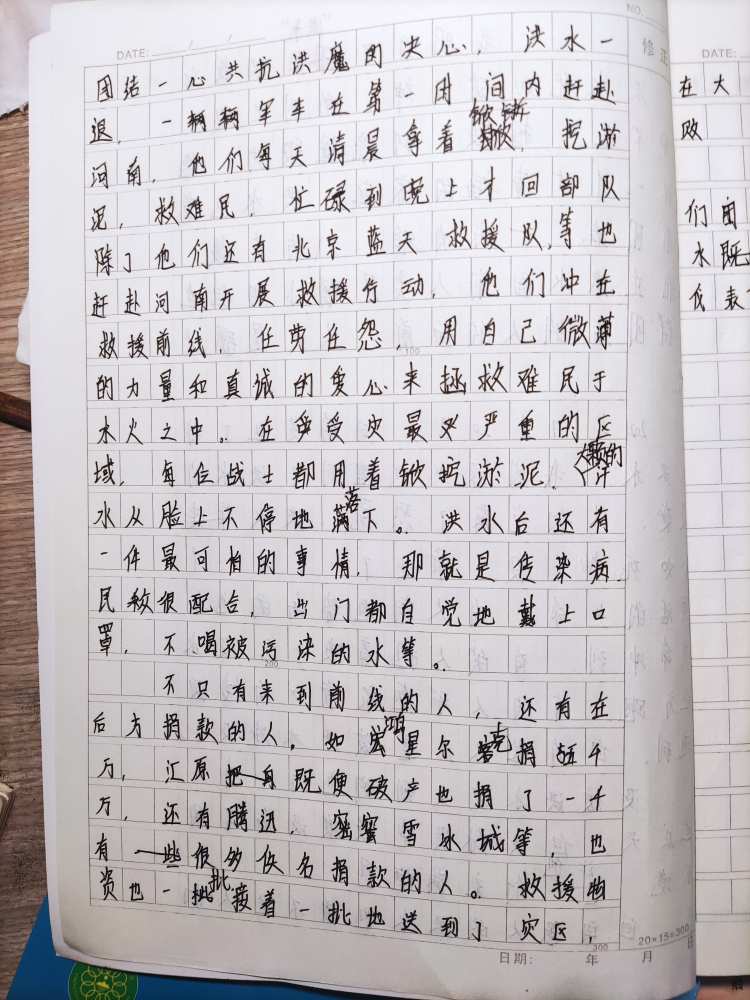 NO.
DATE:
修正
DATE:
团结一心共抗洪魔的决心，洪水一
退，一辆辆军车在第一时间内赶赴
河南，他们每天清晨拿着锨，挖淤
泥，救难民，忙碌到晚上才回部队
除了他们还有北京蓝天救援队，等也
赶赴河南开展救援行动，他们冲在
救援前线，任劳任怨，用自己微薄
的力量和真诚的爱心来拯救难民于
水火之中。在受灾最严重的区
域，每位战士都用着锨挖淤泥，大颗的汗
水从脸上不停地落下。洪水后还有
一件最可怕的事情，那就是传染病，
民众很配合，出门都自觉地戴上口
罩，不喝被污染的水等。
不只有来到前线的人，还有在
后方捐款的人，如鸿星尔克捐五千
万，汇源既便破产也捐了一千
万，还有腾迅，密蜜雪冰城等，也
有很多佚名捐款的人。救援物
资也一批接着一批地送到了灾区，
100
200
300
20×15=300
日期：
年
月
日
在大
败
们由
水既
代表